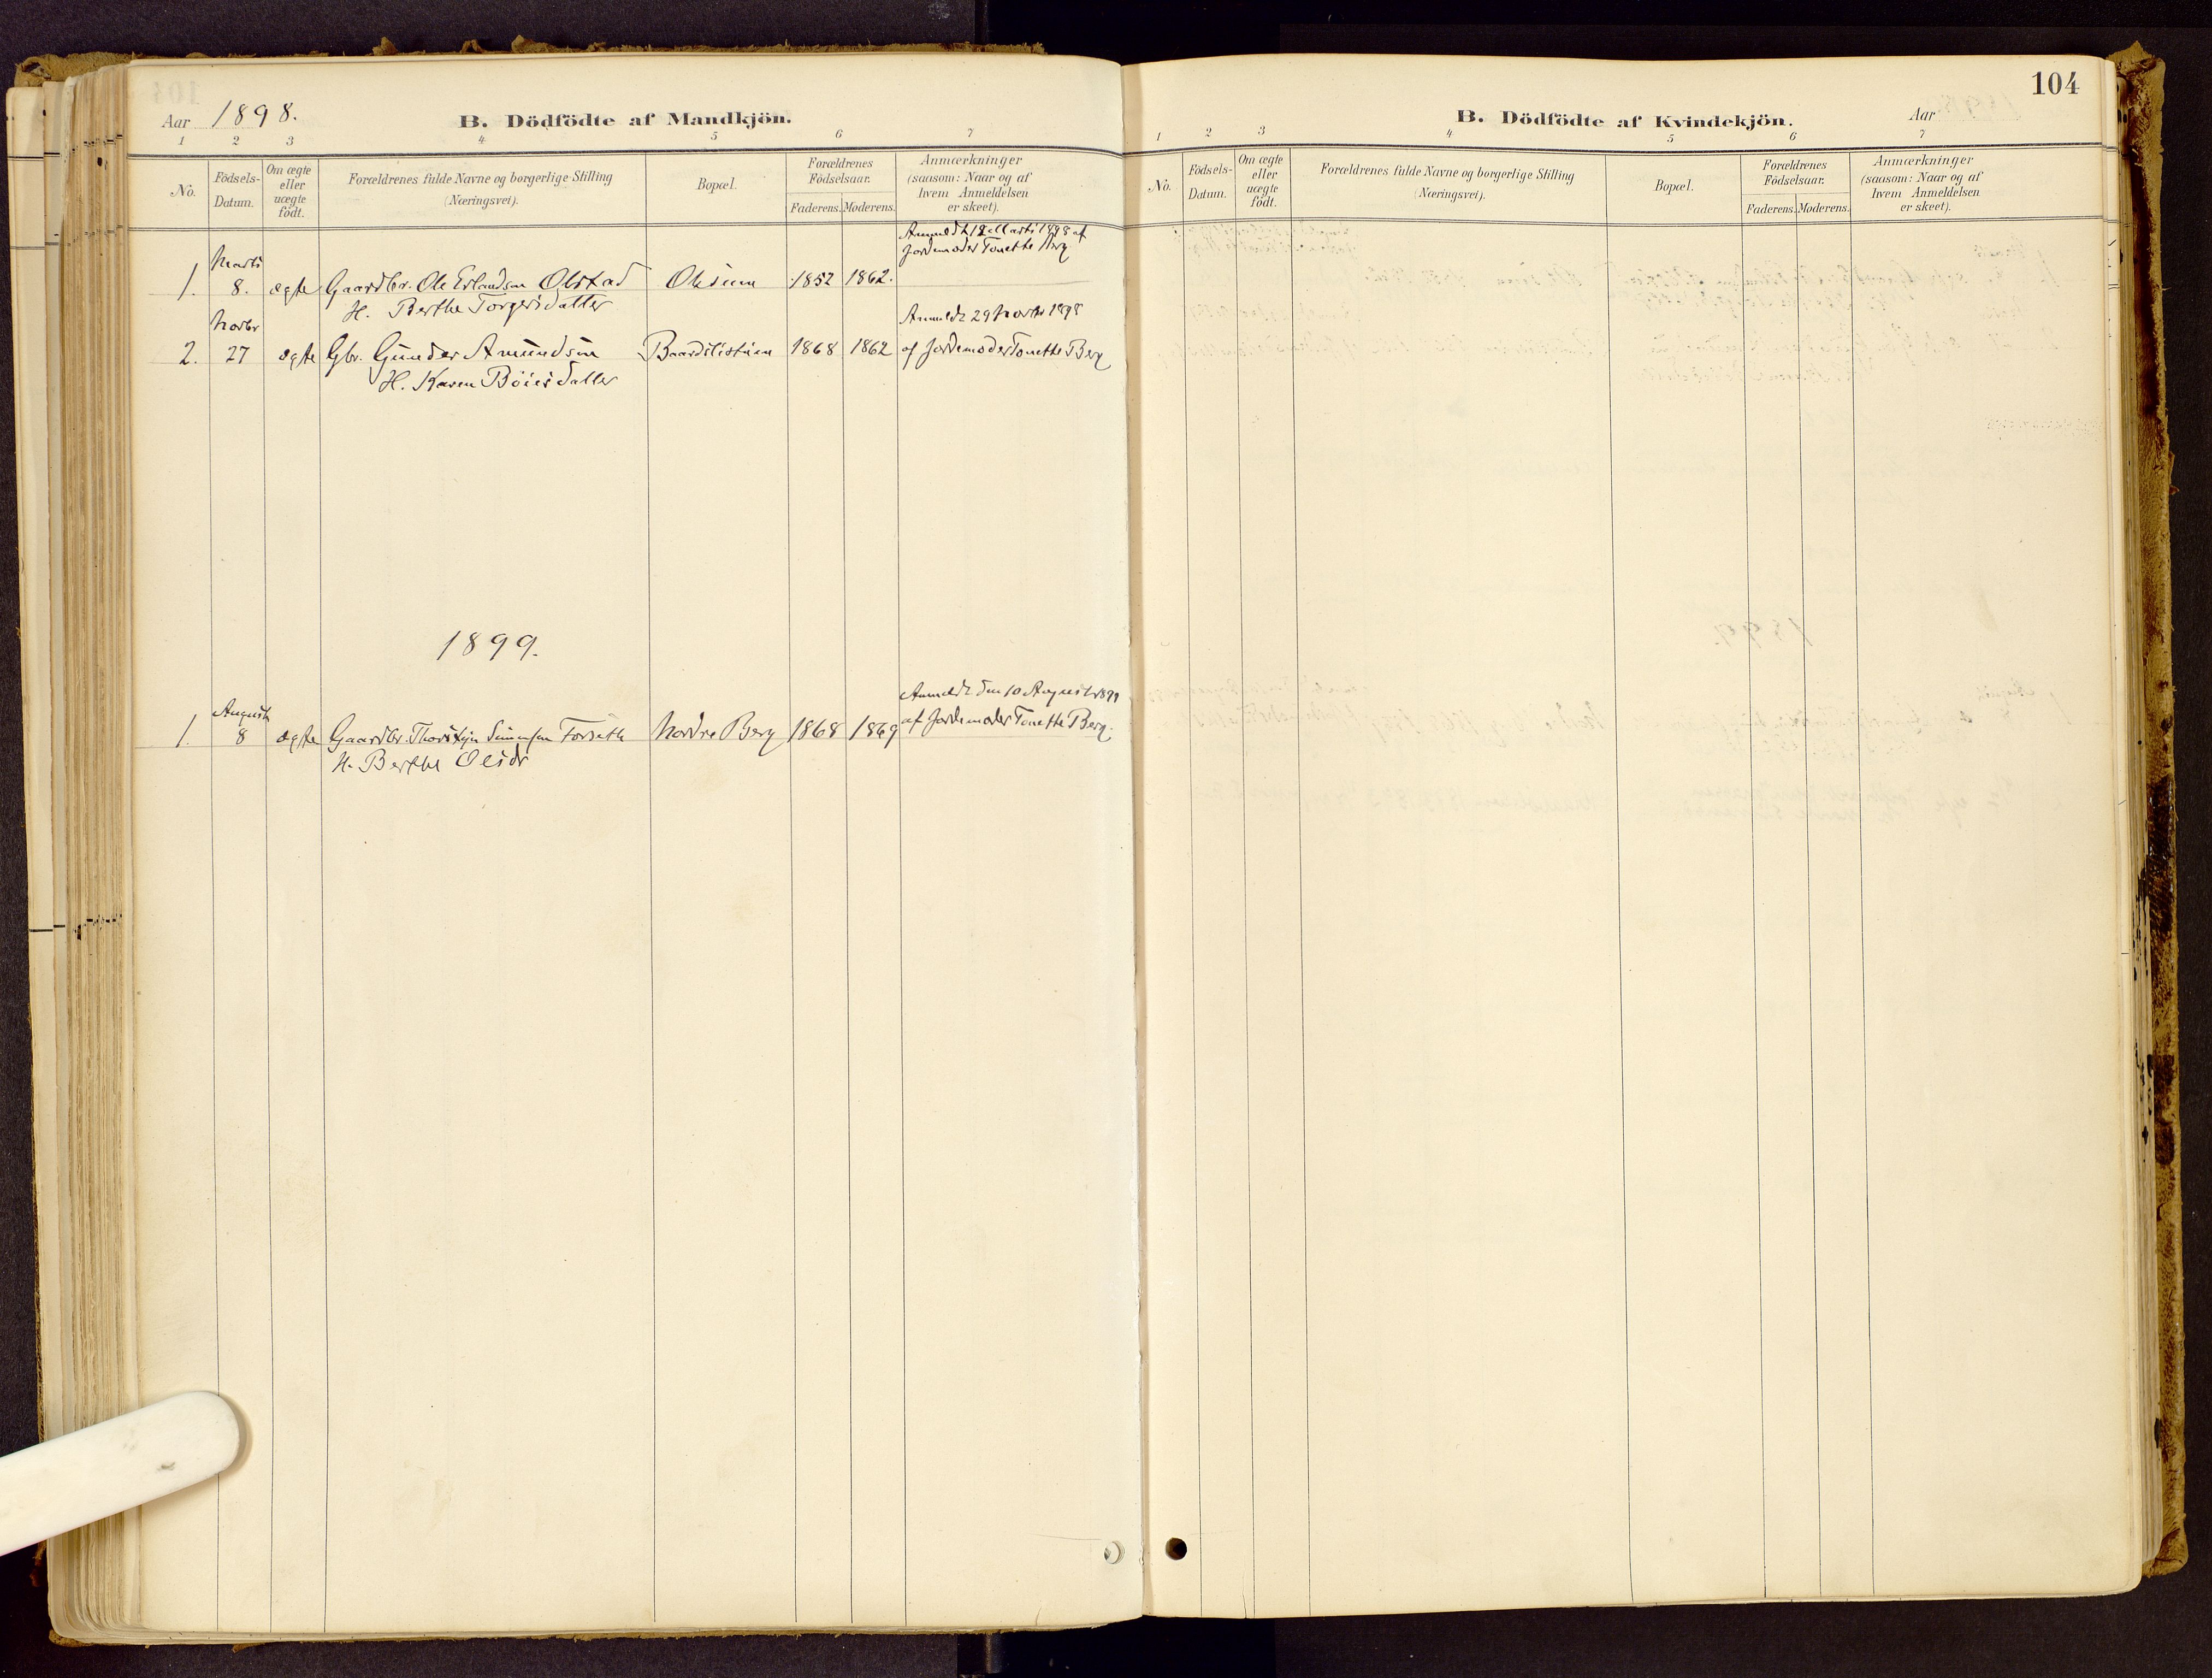 Aar 1898.
B. Dödfödte af Mandkjön.
1 2 3 4 5 6 7
No.
Födsels-Datum.
Om ægte eller uægte födt.
Forældrenes fulde Navne og borgerlige Stilling
(Næringsvei).
Bopæl.
Forældrenes Födselsaar.
Faderens. Moderens.
Anmærkninger
(saasom: Naar og af
hvem Anmeldelsen
er skeet).
Anmeldt 12 Marts 1898 af
Jordemoder Tonette Berg
Marts
1. 8. ægte Gaardbr. Ole Erlandsen Olstad 1852 1862.
H. Berthe Torgersdatter
Novbr
Anmeldt 29 Novbr 1898
2. 27 ægte Gbr. Gunder Amundsen Baardslistuen 1868 1862 af Jordemoder Tonette Berg
H. Karen Böiesdatter
1899.
August
Anmeldt den 10 August 1899
1. 8 ægte Gaardbr. Thorstein Simensen Forseth Nordre Berg 1868 1869 af Jordemoder Tonette Berg.
H. Berthe Olsdr
104
B. Dödfödte af Kvindekjön.
Aar
1 2 3 4 5 6 7
No.
Födsels-Datum.
Om ægte eller uægte födt.
Forældrenes fulde Navne og borgerlige Stilling
(Næringsvei).
Bopæl.
Forældrenes Födselsaar.
Faderens. Moderens.
Anmærkninger
(saasom: Naar og af
hvem Anmeldelsen
er skeet).